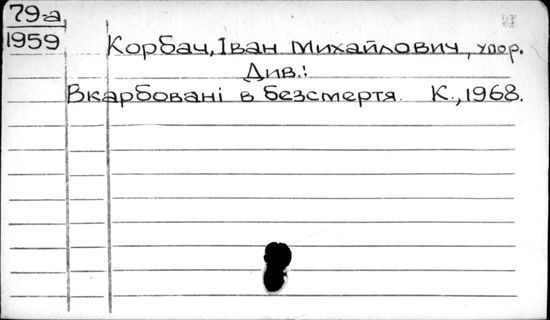 79-а
1959
Корбач, Іван Михайлович, упор.
Див.:
Вкарбовані в безсмертя. К., 1968.